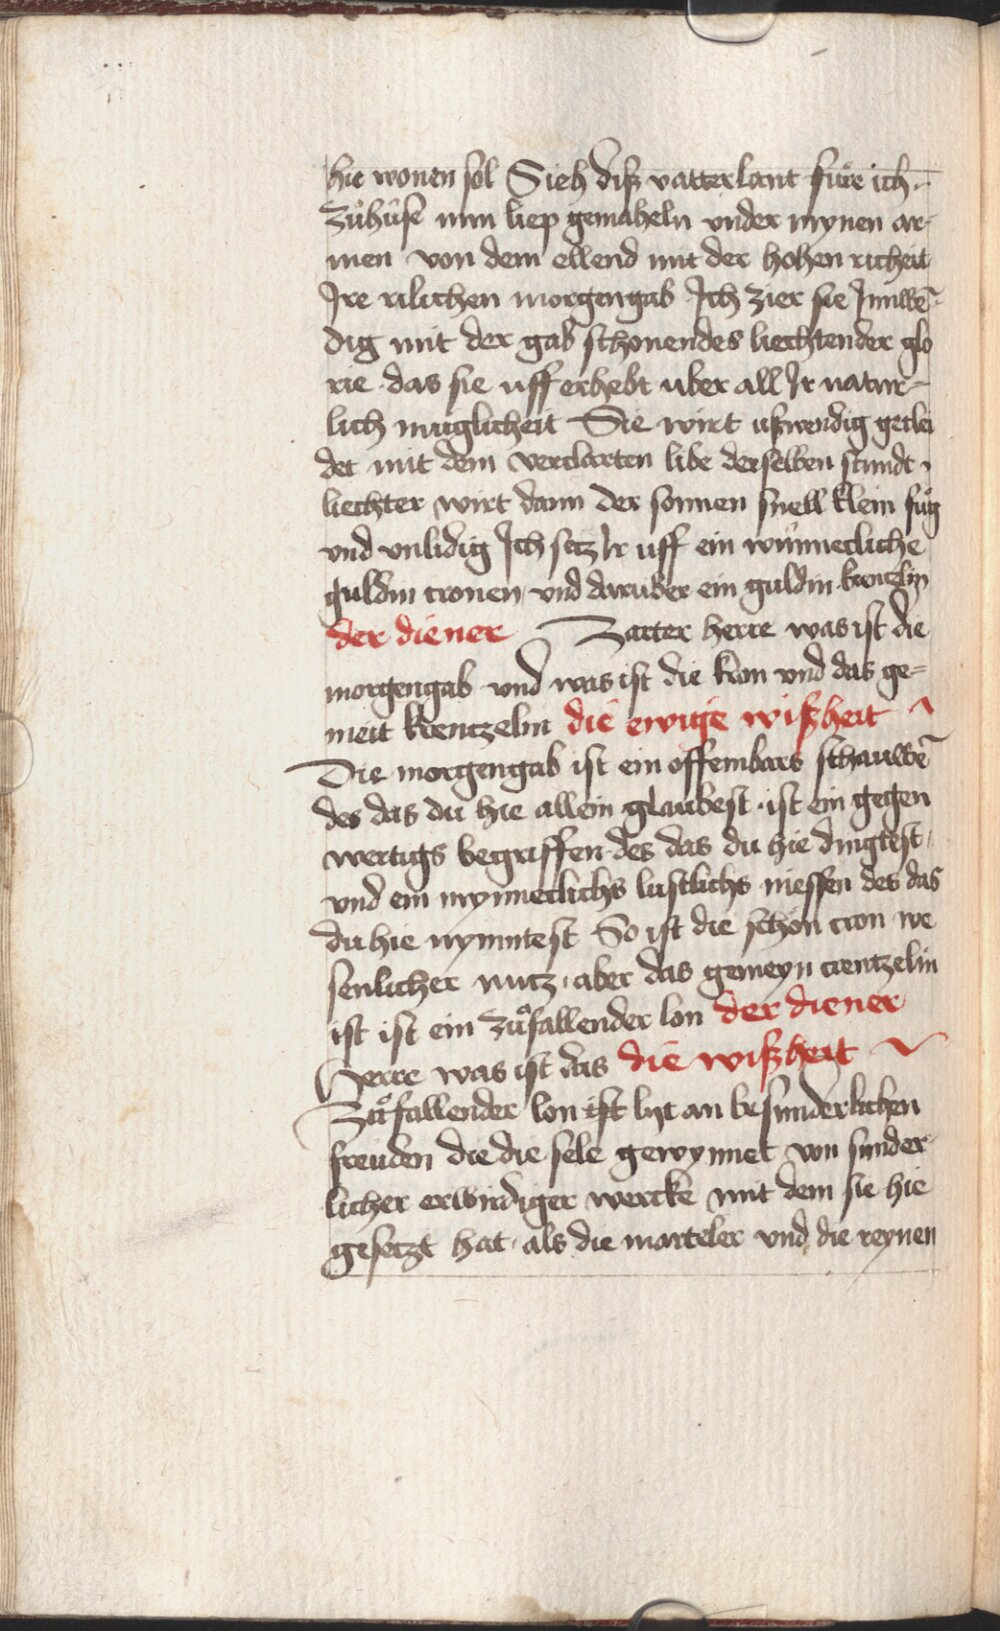 hie wonen sol Sieh diß vatterlant fuͤre ich
zuͦhuͦse min liep gemaheln vnder mynen ar-
men von dem ellend mit der hohen richeit
Jre rilichen morgengab Jch zier sie Jnnwē-
dig mit der gab schonendes liechtender glo
rie das sie uff erhebt uber all Jr natur-
lich muglicheit Sie wirt ußwendig geclei
det mit dem verclarten libe derselben stundt
liechter wirt dann der sonnen snell klein fuͤg
vnd vnlidig Jch setz Jr uff ein wuͤnnecliche
guldin cronen vnd daruber ein guldin krentzlin
der diener Zarter herre was ist die
morgengab vnd was ist die kron vnd das ge-
meit krentzelin die ewige wißheit
Die morgengab ist ein offembars schauwē
des das du hie allein glaubest ist ein gegen
wertigs begriffen des das du hie dingtest
vnd ein mynneclichs lustlichs niessen des das
du hie mynntest So ist die schon cron we
senlicher nutz aber das gemeyn crentzelin
ist ist ein zuͦfallender lon der diener
Herre was ist das die wißheit
Zuͦfallender lon ist lyt an besunderlichen
freuden die die sele gewynnet von sunder
licher erwirdiger wercke mit dem sie hie
gesetzt hat als die marteler vnd die reynen